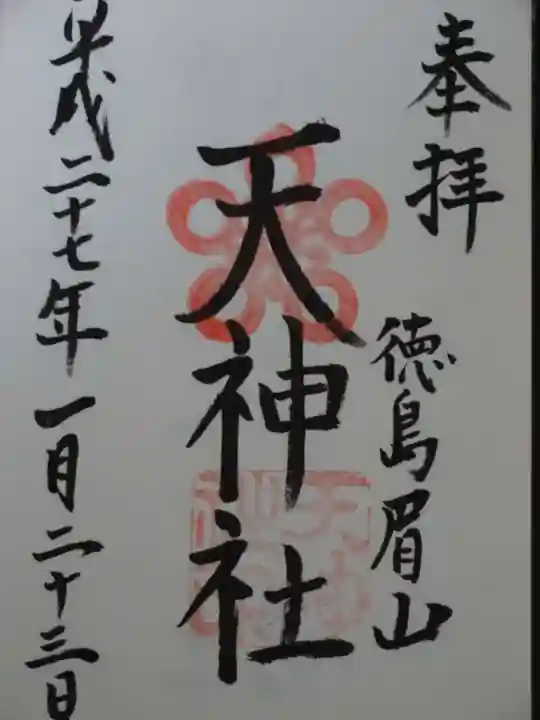 奉拝
徳島眉山
天神社
平成二十七年一月二十三日